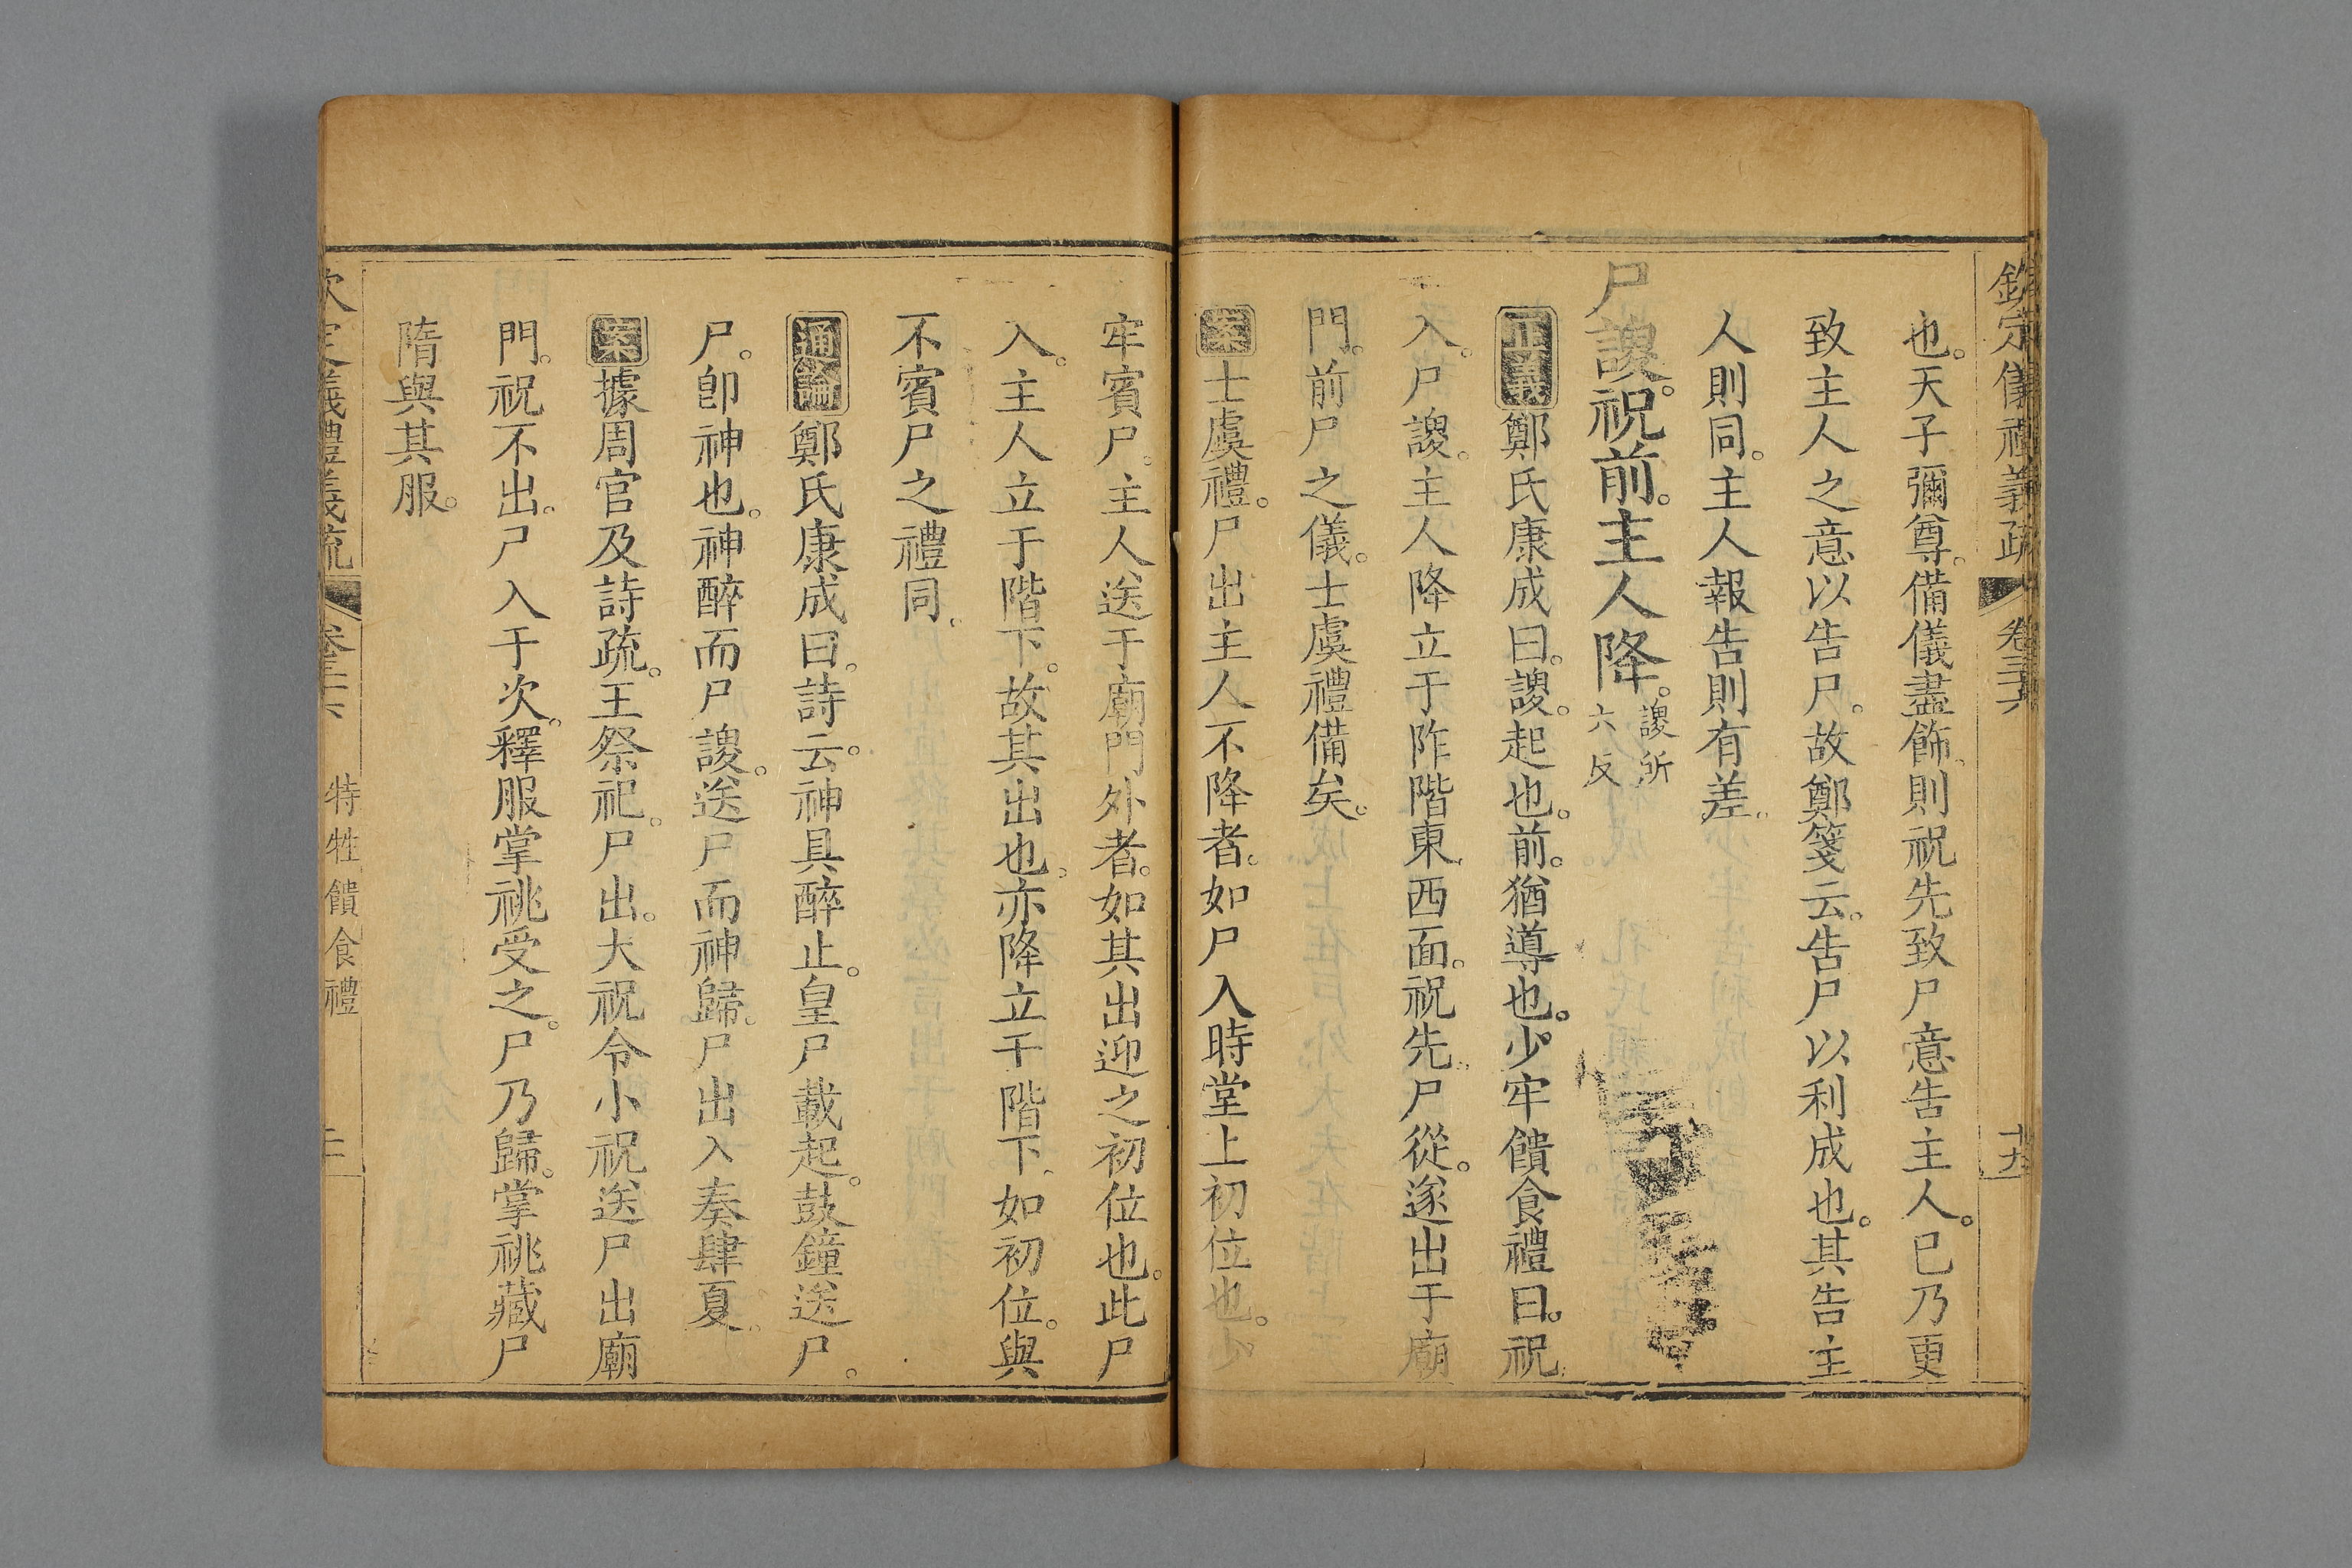 欽定儀禮義疏 卷三十六 十九
也。天子彌尊。備儀盡飾。則祝先致尸意告主人。已乃更
致主人之意以告尸。故鄭箋云。告尸以利成也。其告主
人則同。主人報告則有差。
尸謖。祝前。主人降。謖所六反
正義鄭氏康成曰。謖。起也。前。猶導也。少牢饋食禮曰。祝
入。尸謖。主人降立于阼階東。西面。祝先。尸從。遂出于廟
門。前尸之儀。士虞禮備矣。
案士虞禮。尸出主人不降者。如尸入時堂上初位也。少
牢賓尸。主人送于廟門外者。如其出迎之初位也。此尸
入。主人立于階下。故其出也。亦降立于階下。如初位。與
不賓尸之禮同。
通論鄭氏康成曰。詩云。神具醉止。皇尸載起。鼓鐘送尸。
尸。卽神也。神醉而尸謖。送尸而神歸。尸出入奏肆夏。
案據周官及詩疏。王祭祀。尸出。大祝令小祝送尸出廟
門。祝不出。尸入于次。釋服掌祧受之。尸乃歸。掌祧藏尸
隋與其服。
欽定儀禮義疏 卷三十六 特牲饋食禮